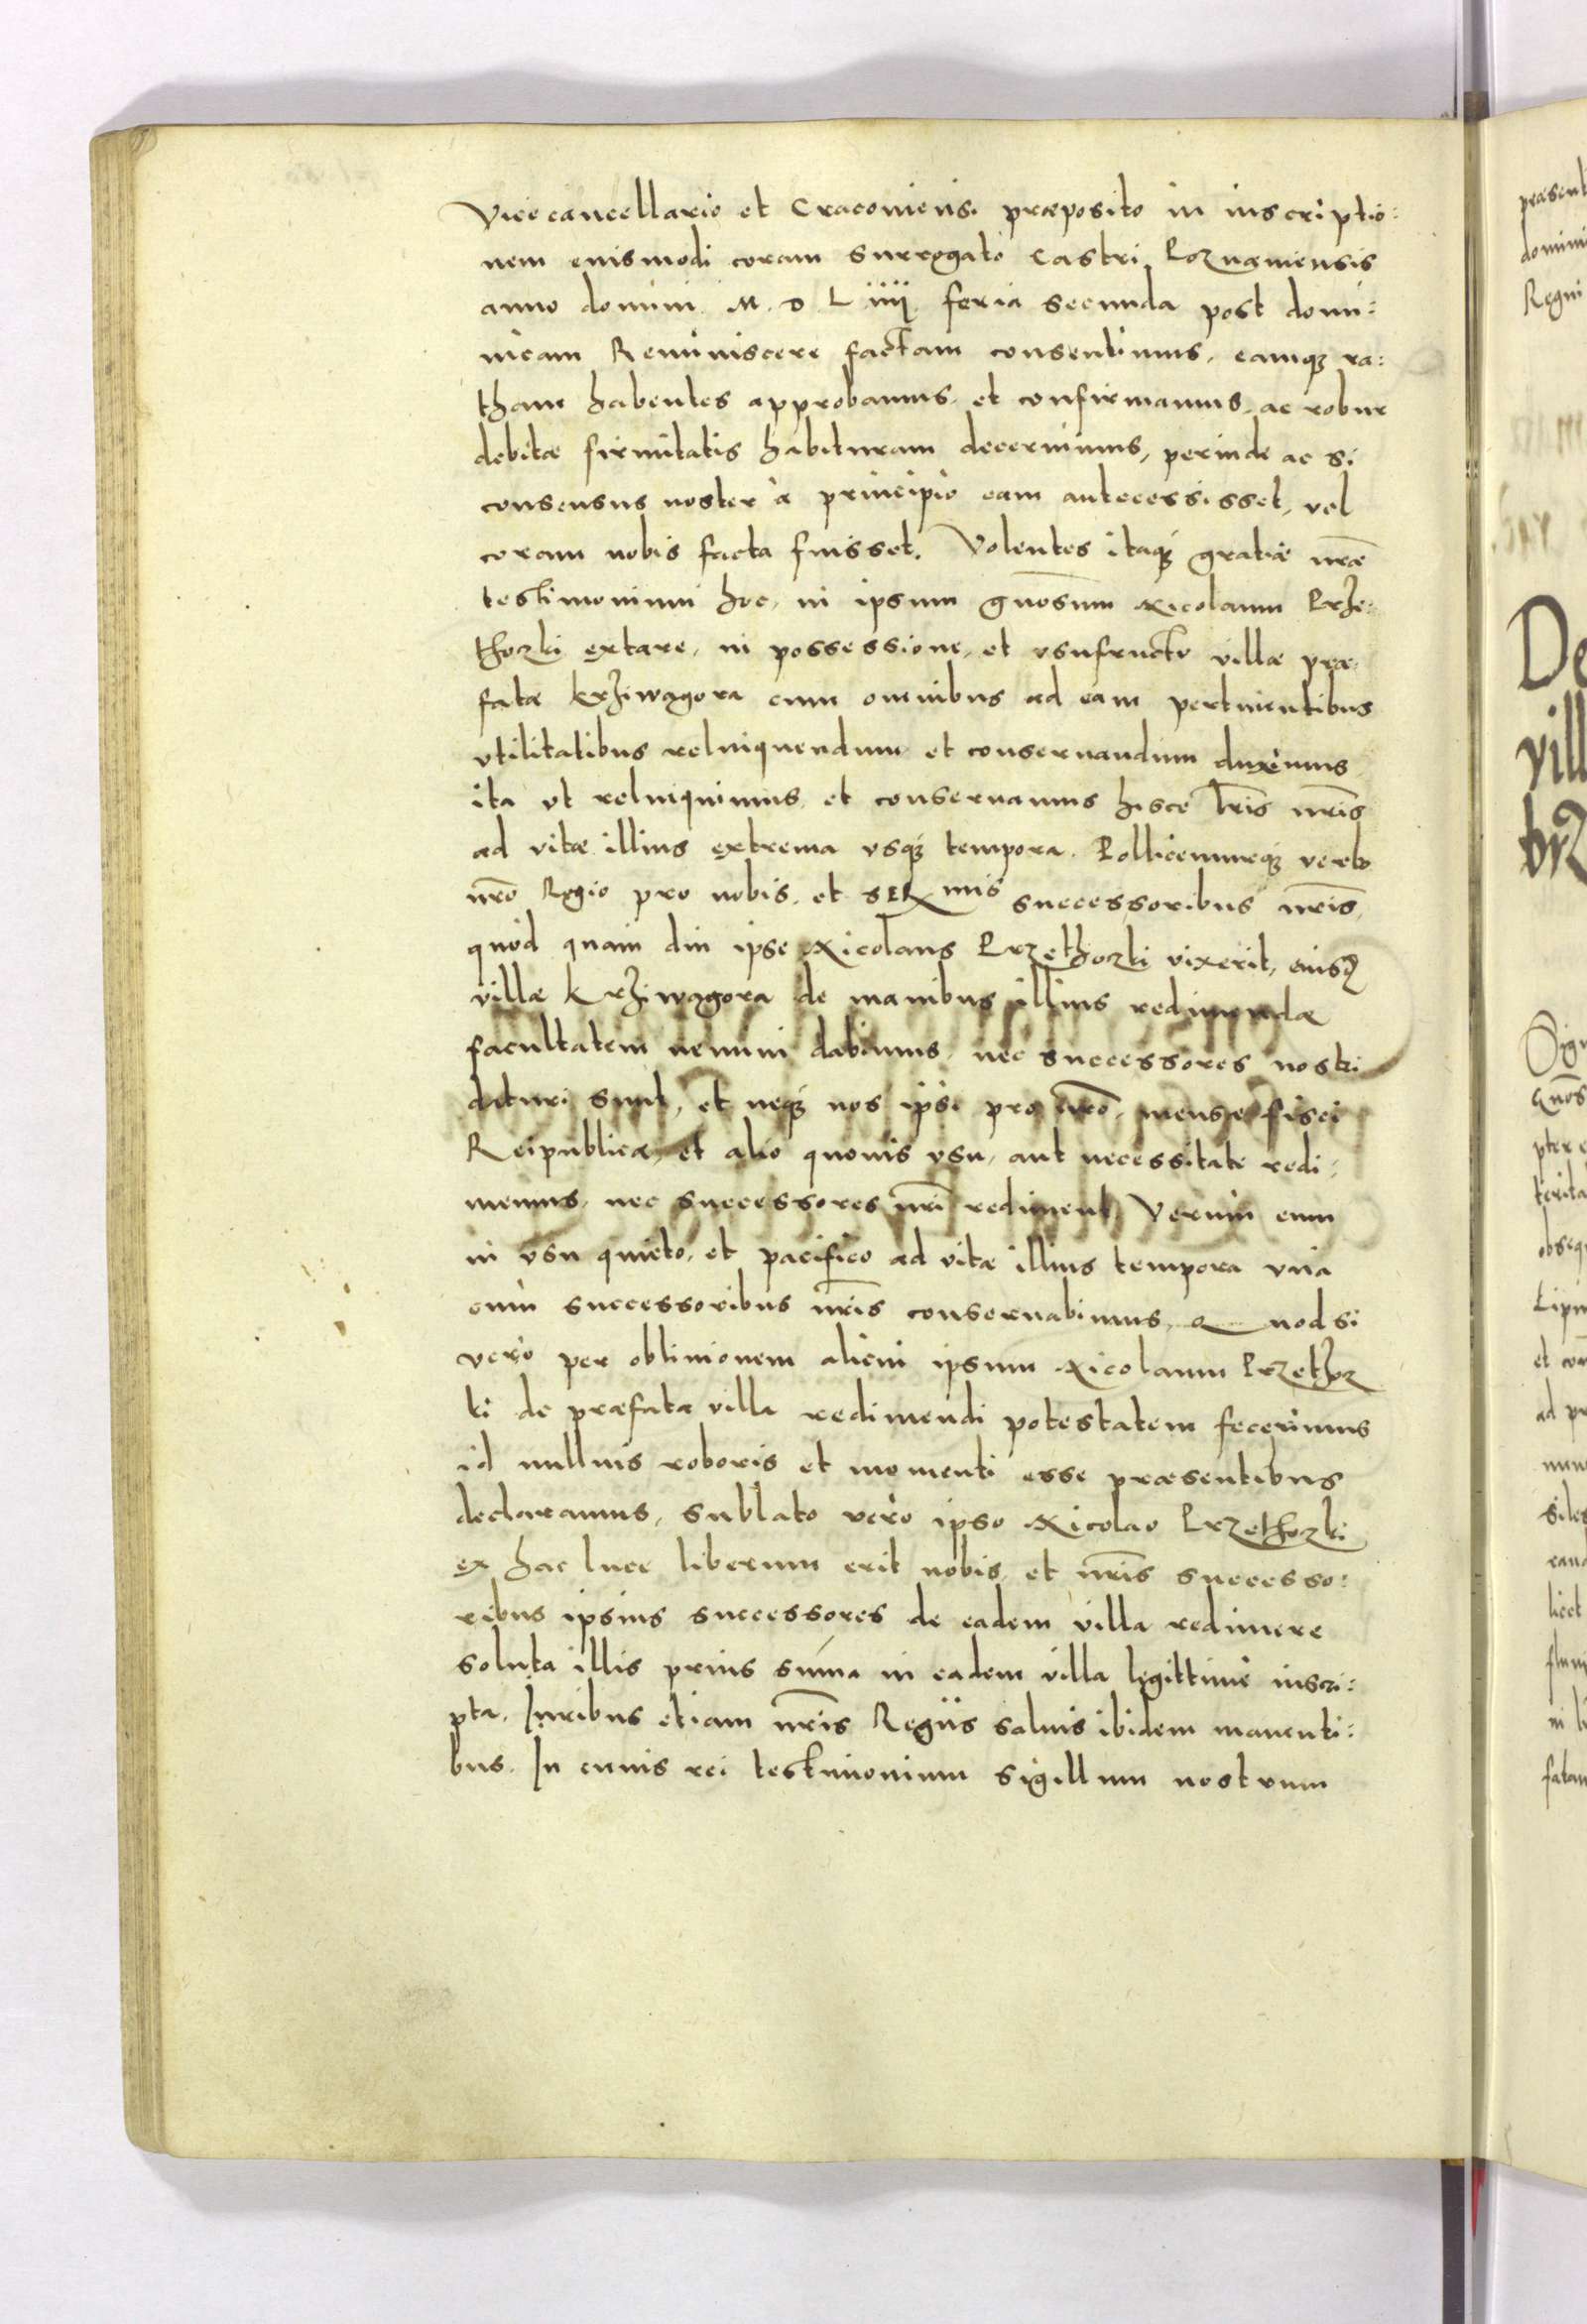 Vicecancellario et Cracouiensi præposito in inscriptio:
nem eiusmodi coram Surrogato Castri Poznaniensis
anno domini M. D. L iiij feria secunda post domi:
nicam Reminiscere factam consentimus, eamq₃ ra:
tham habentes approbamus et confirmamus, ac robur
debitæ firmitatis habituram decernimus, perinde ac si
consensus noster à principio eam antecessisset, vel
coram nobis facta fuisset. Volentes itaq₃ gratiæ nr̃æ
testimonium hoc, in ipsum gn̄osum Nicolaum Prze:
thozki extare, in possessione, et vsufructu villæ præ:
fatæ Krziwagora cum omnibus ad eam pertinentibus
vtilitatibus relinquendum et conseruandum duximus
ita vt relinquimus et conseruamus hisce lr̃is nr̃is
ad vitæ illius extrema vsq₃ tempora. Pollicemurq₃ verbo
nr̃o Regio pro nobis et SERmis successoribus nr̃is,
quòd quam diu ipse Nicolaus Przethozki vixerit, eiusd
villæ Krziwagora de manibus illius redimendæ
facultatem nemini dabimus, nec successores nostri
daturi sunt, et neq₃ nos ipsi pro nr̃o, mensæ fisci
Reipublicæ, et alio quouis vsu, aut necessitate redi:
memus, nec successores nr̃i rediment, Verum eum
in vsu quieto, et pacifico ad vitæ illius tempora vnà
cum successoribus nr̃is conseruabimus, Quod si
vero per obliuionem alicui ipsum Nicolaum Przethoz
ki de præfata villa redimendi potestatem fecerimus
id nullius roboris et momenti esse præsentibus
declaramus, Sublato verò ipso Nicolao Przethozki
ex hac luce liberum erit nobis et nr̃is successo:
ribus ipsius successores de eadem villa redimere
soluta illis prius sum̄a in eadem villa legittimè inscri:
pta. Iuribus etiam nr̃is Regijs saluis ibidem manenti:
bus. In cuius rei testimonium sigillum nostrum
præsent
domini
Regni
De
vill
Sig
pter
obseq
et con
ad pr
siles
licet